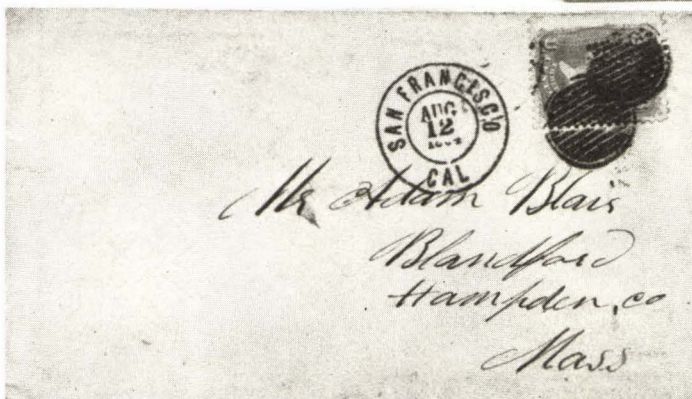 SAN FRANCISCO
AUG
12
CAL
Mr Adam Blair
Blandford
Hampden, co
Mass